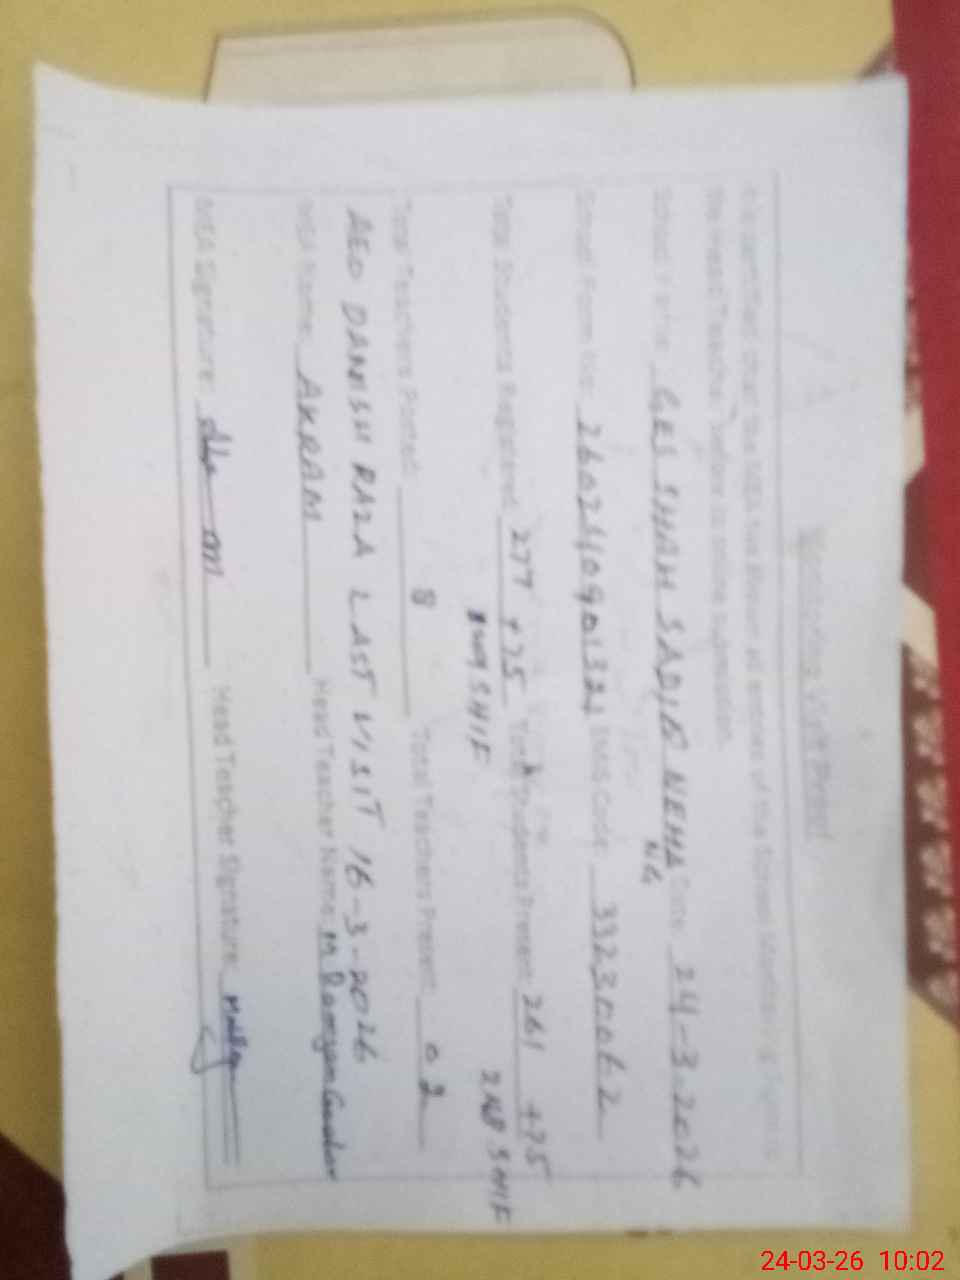 Monitoring Visit Proof
It is certified that the MEA has shown all entries of the School Monitoring Form to
the Head Teacher before its online submission.
School Name: GES SHAH SADIQ NEHA Date: 24-3-2026
NG
School Form No: EMIS Code: 33230062
Total Students Registered: 277 +75 Total Students Present: 261 +75
2ND SHIF
Total Teachers Posted: 8 Total Teachers Present: 02
AEO DANISH RAZA LAST VISIT 16-3-2026
MEA Name: AKRAM Head Teacher Name: M
MEA Signature: Head Teacher Signature:
24-03-26 10:02